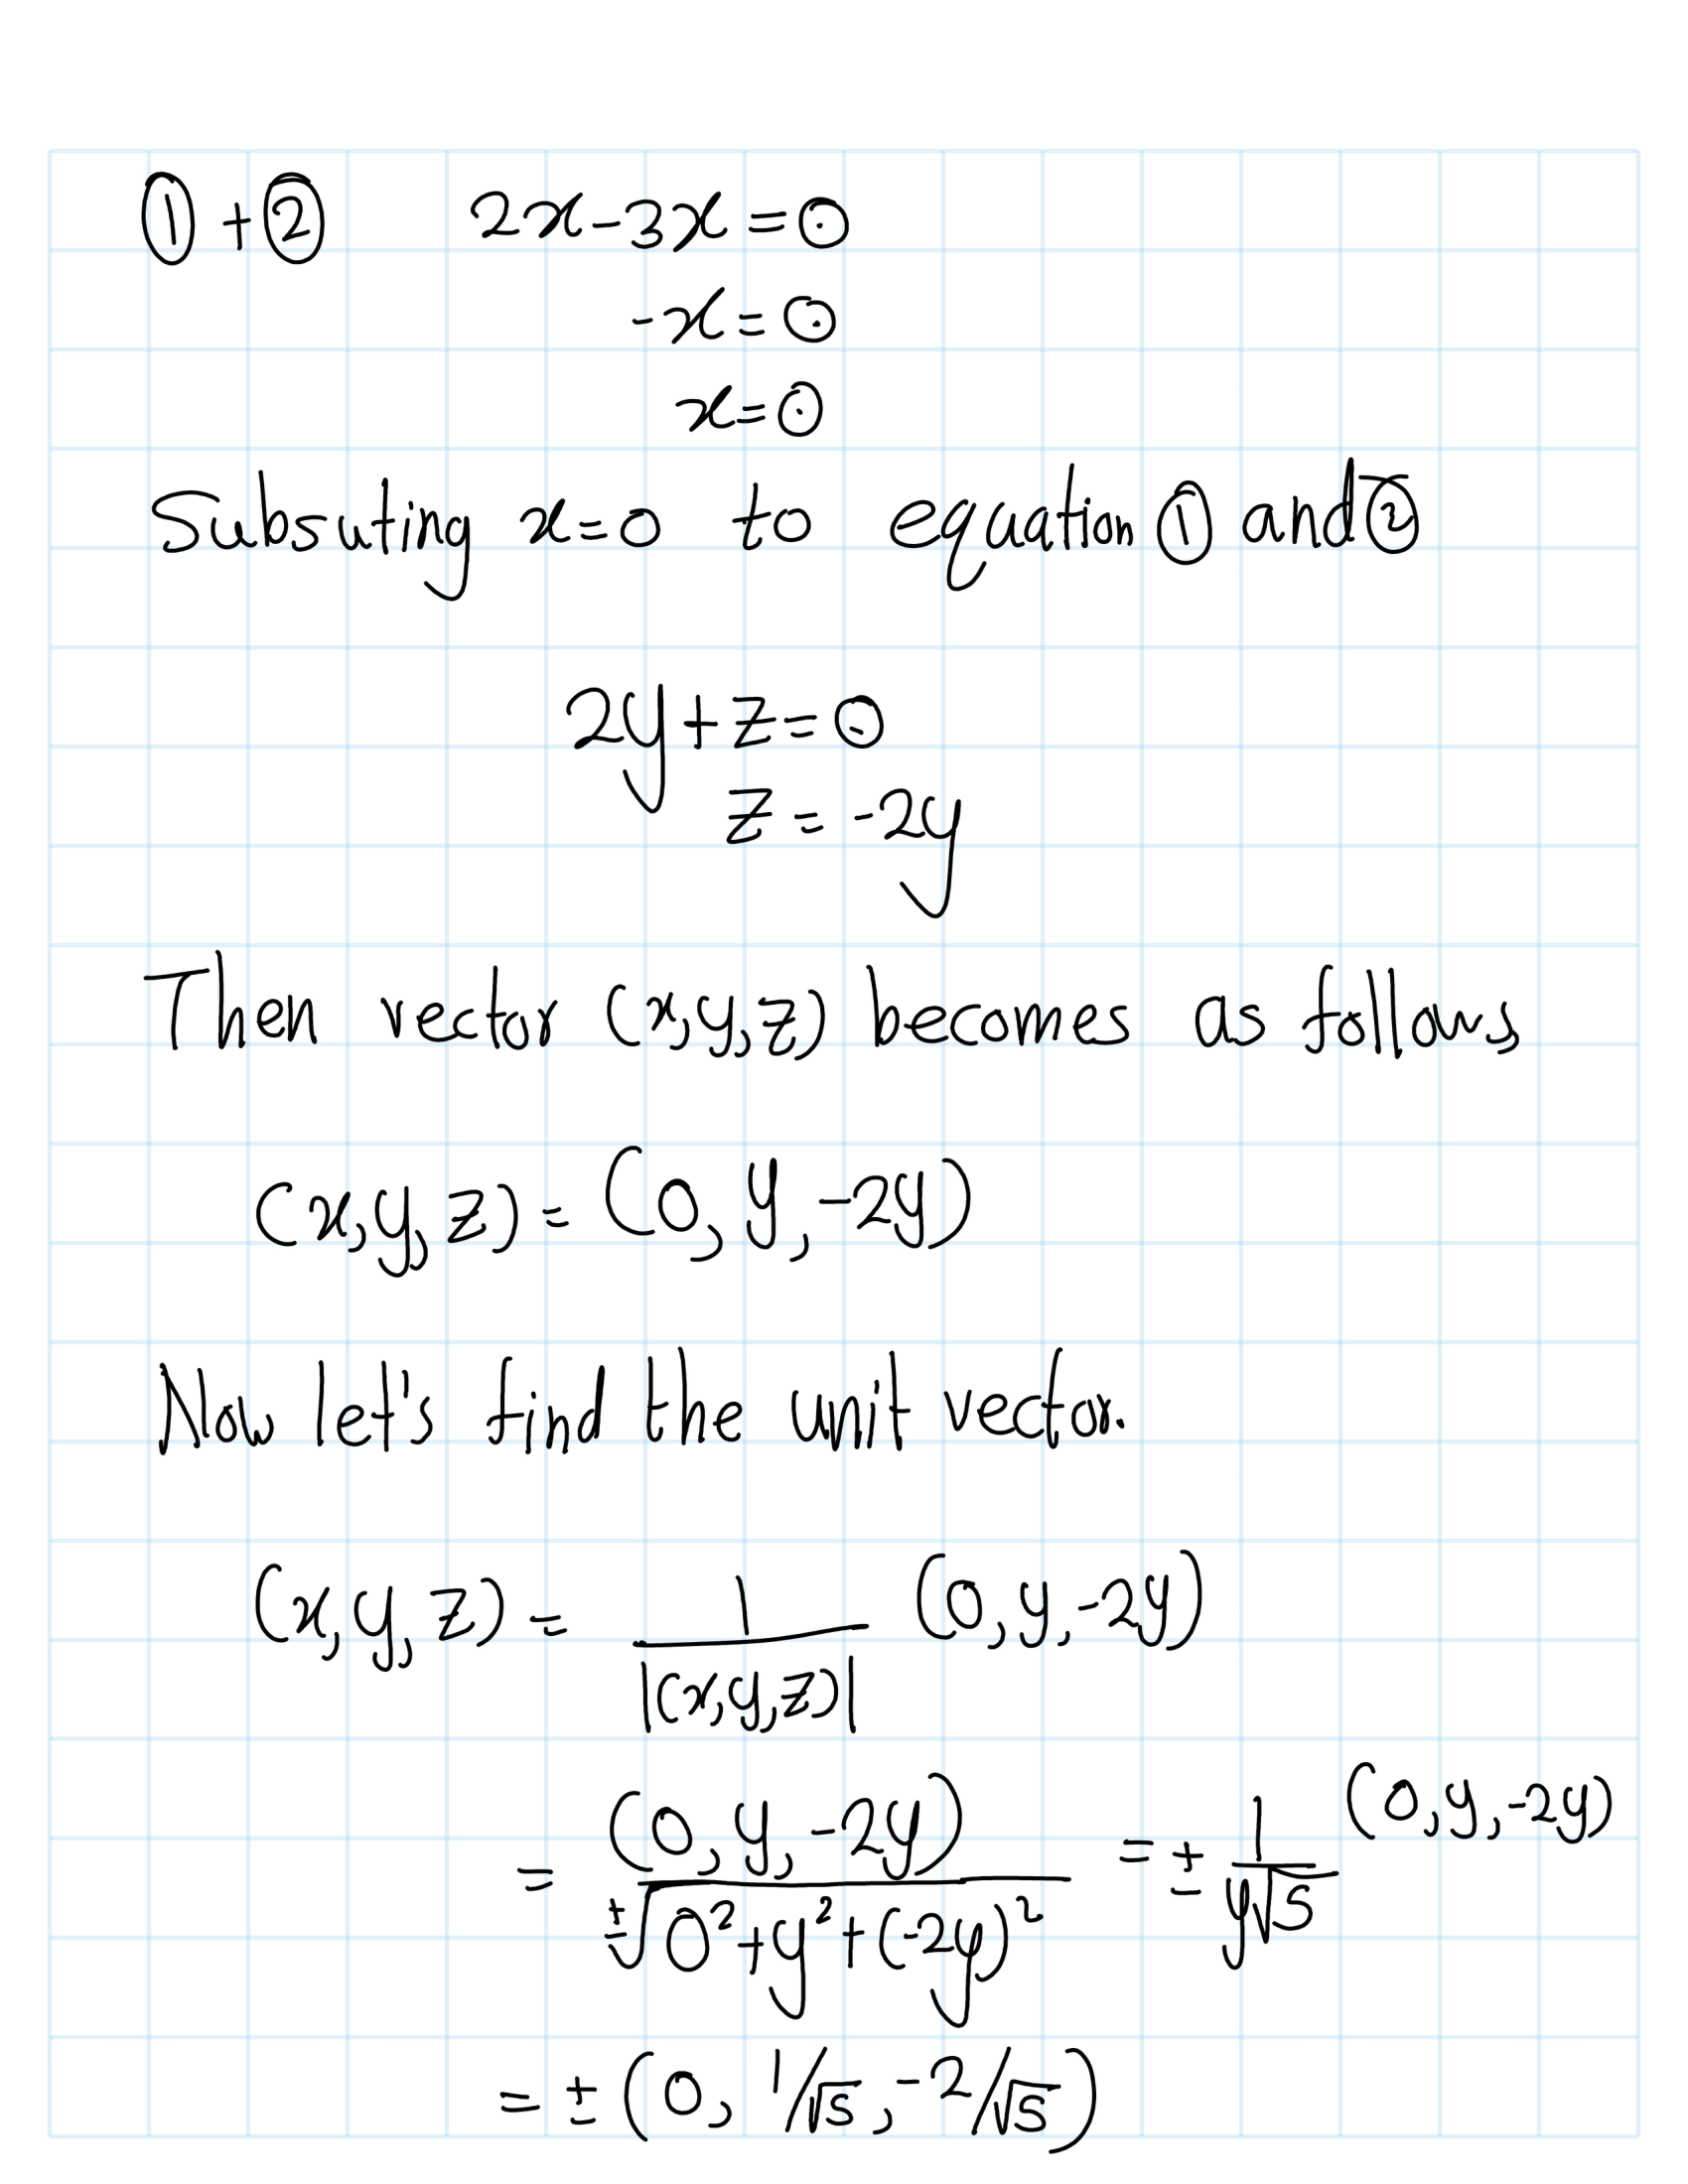 ① + ② 2x-3x=0
-x=0
x=0
Subsuting x=0 to equation ① and ②
2y+z=0
z=-2y
Then vector (x,y,z) becomes as follows,
(x,y,z)=(0,y,-2y)
Now let's find the unit vector.
(x,y,z)= 1/|(x,y,z)| (0,y,-2y)
= (0,y,-2y)/±√(0²+y²+(-2y)²) = ± 1/(y√5) (0,y,-2y)
= ± (0, 1/√5, -2/√5)